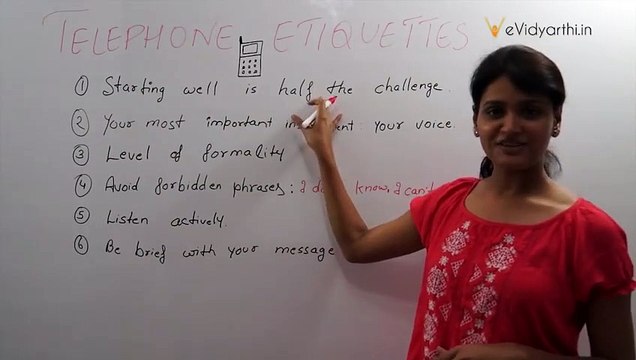 TELEPHONE ETIQUETTES
eVidyarthi.in
① Starting well is half the challenge.
② Your most important : your voice.
③ Level of formality
④ Avoid forbidden phrases: I know, I can't
⑤ Listen actively.
⑥ Be brief with your message